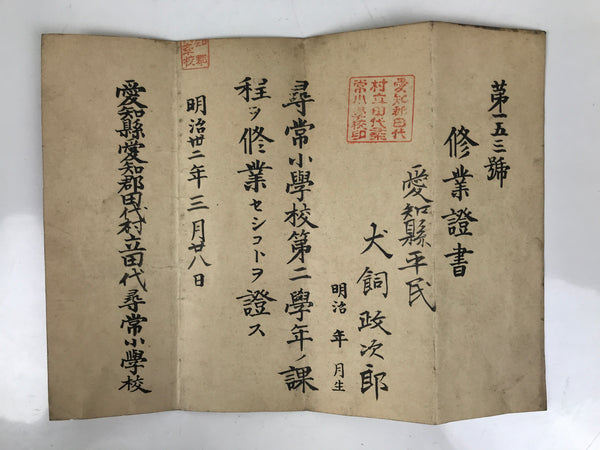 第一五三號
修業證書
愛知縣平民
犬飼政次郎
明治 年 月生
尋常小學校第二學年ノ課
程ヲ修業セシコトヲ證ス
明治卅二年三月廿八日
愛知縣愛知郡田代村立田代尋常小學校
愛知郡田代
村立田代尋
常小學校印
知郡
學校